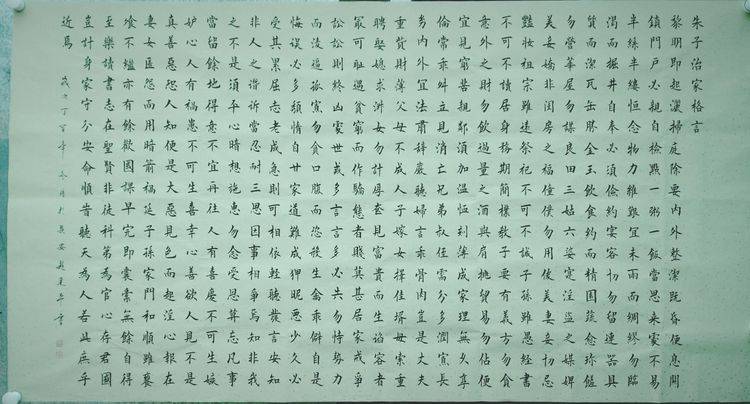 朱子治家格言
黎明即起灑掃庭除要內外整潔既昏便息關
鎖門戶必親自檢點一粥一飯當思來處不易
半絲半縷恆念物力維艱宜未雨而綢繆勿臨
渴而掘井自奉必須儉約宴客切勿留連器具
質而潔瓦缶勝金玉飲食約而精園蔬愈珍饈
勿營華屋勿謀良田三姑六婆實淫盜之媒婢
美妾嬌非閨房之福僮僕勿用俊美妻妾切忌
豔妝祖宗雖遠祭祀不可不誠子孫雖愚經書
不可不讀居身務期簡樸教子要有義方勿貪
意外之財勿飲過量之酒與肩挑貿易勿佔便
宜見窮苦親鄰須加溫恤刻薄成家理無久享
倫常乖舛立見消亡兄弟叔姪須分多潤寡長
幼內外宜法肅辭嚴聽婦言乖骨肉豈是丈夫
重貲財薄父母不成人子嫁女擇佳壻毋索重
聘娶媳求淑女勿計厚奩見富貴而生諂容者
最可恥遇貧窮而作驕態者賤莫甚居家戒爭
訟訟則終凶處世戒多言言多必失勿恃勢力
而凌逼孤寡勿貪口腹而恣殺生禽乖僻自是
悔誤必多頹惰自甘家道難成狎暱惡少久必
受其累屈志老成急則可相依輕聽發言安知
非人之譖訴當忍耐三思因事相爭焉知非我
之不是須平心暗想施惠勿念受恩莫忘凡事
當留餘地得意不宜再往人有喜慶不可生嫉
妒心人有禍患不可生喜幸心善欲人見不是
真善惡恐人知便是大惡見色而起淫心報在
妻女匿怨而用暗箭禍延子孫家門和順雖饔
飧不繼亦有餘歡國課早完即囊橐無餘自得
至樂讀書志在聖賢非徒科第為官心存君國
豈計身家守分安命順時聽天為人若此庶乎
近焉 歲次丁酉年冬月於長安